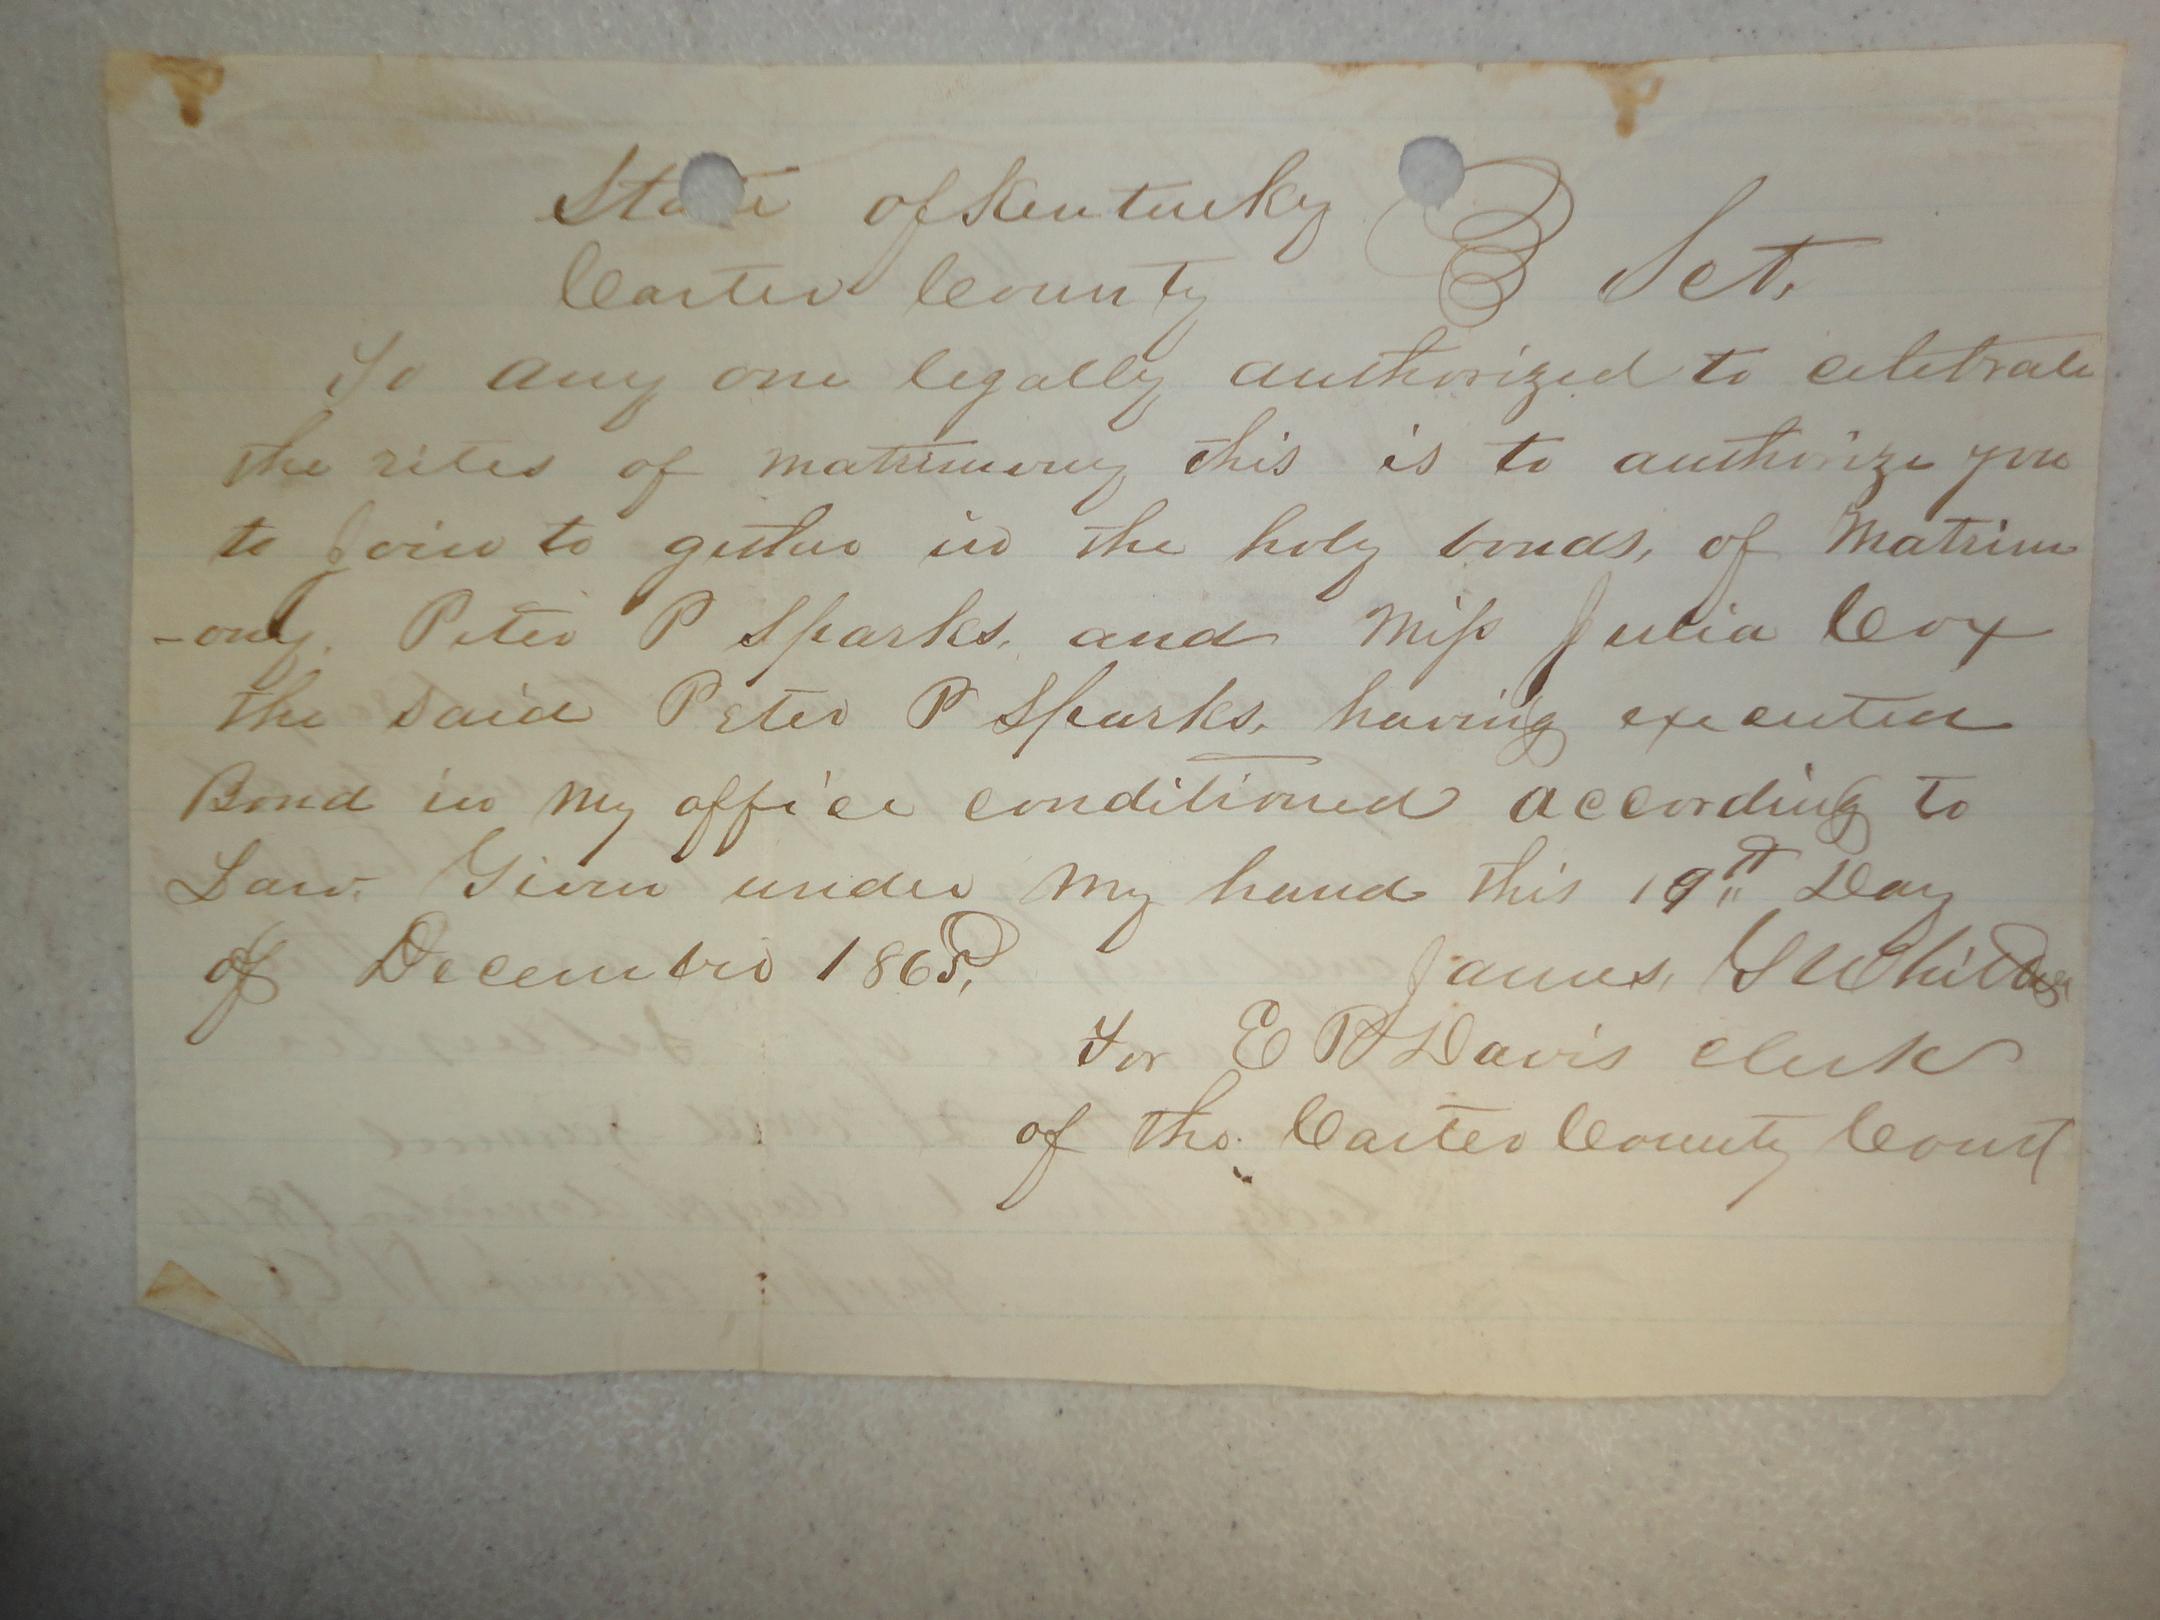 State of Kentucky
Carter County Sct.
To any one legally authorized to celebrate
the rites of matrimony this is to authorize you
to Join to gether in the holy bonds, of Matrim
-ony. Peter P Sparks, and Miss Julia Cox
the said Peter P Sparks, having executed
Bond in my office conditioned according to
Law. Given under my hand this 19th Day
of December 1865,
James, G Whitt
For E P Davis Clerk
of the Carter County Court